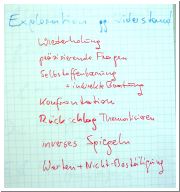 Exploration gg Widerstand
Wiederholung
präzisierende Fragen
Selbstoffenbarung
+ indirekte
Konfrontation
Rückschlag Thematisieren
inverses Spiegeln
Warten + Nicht-Bestätigung